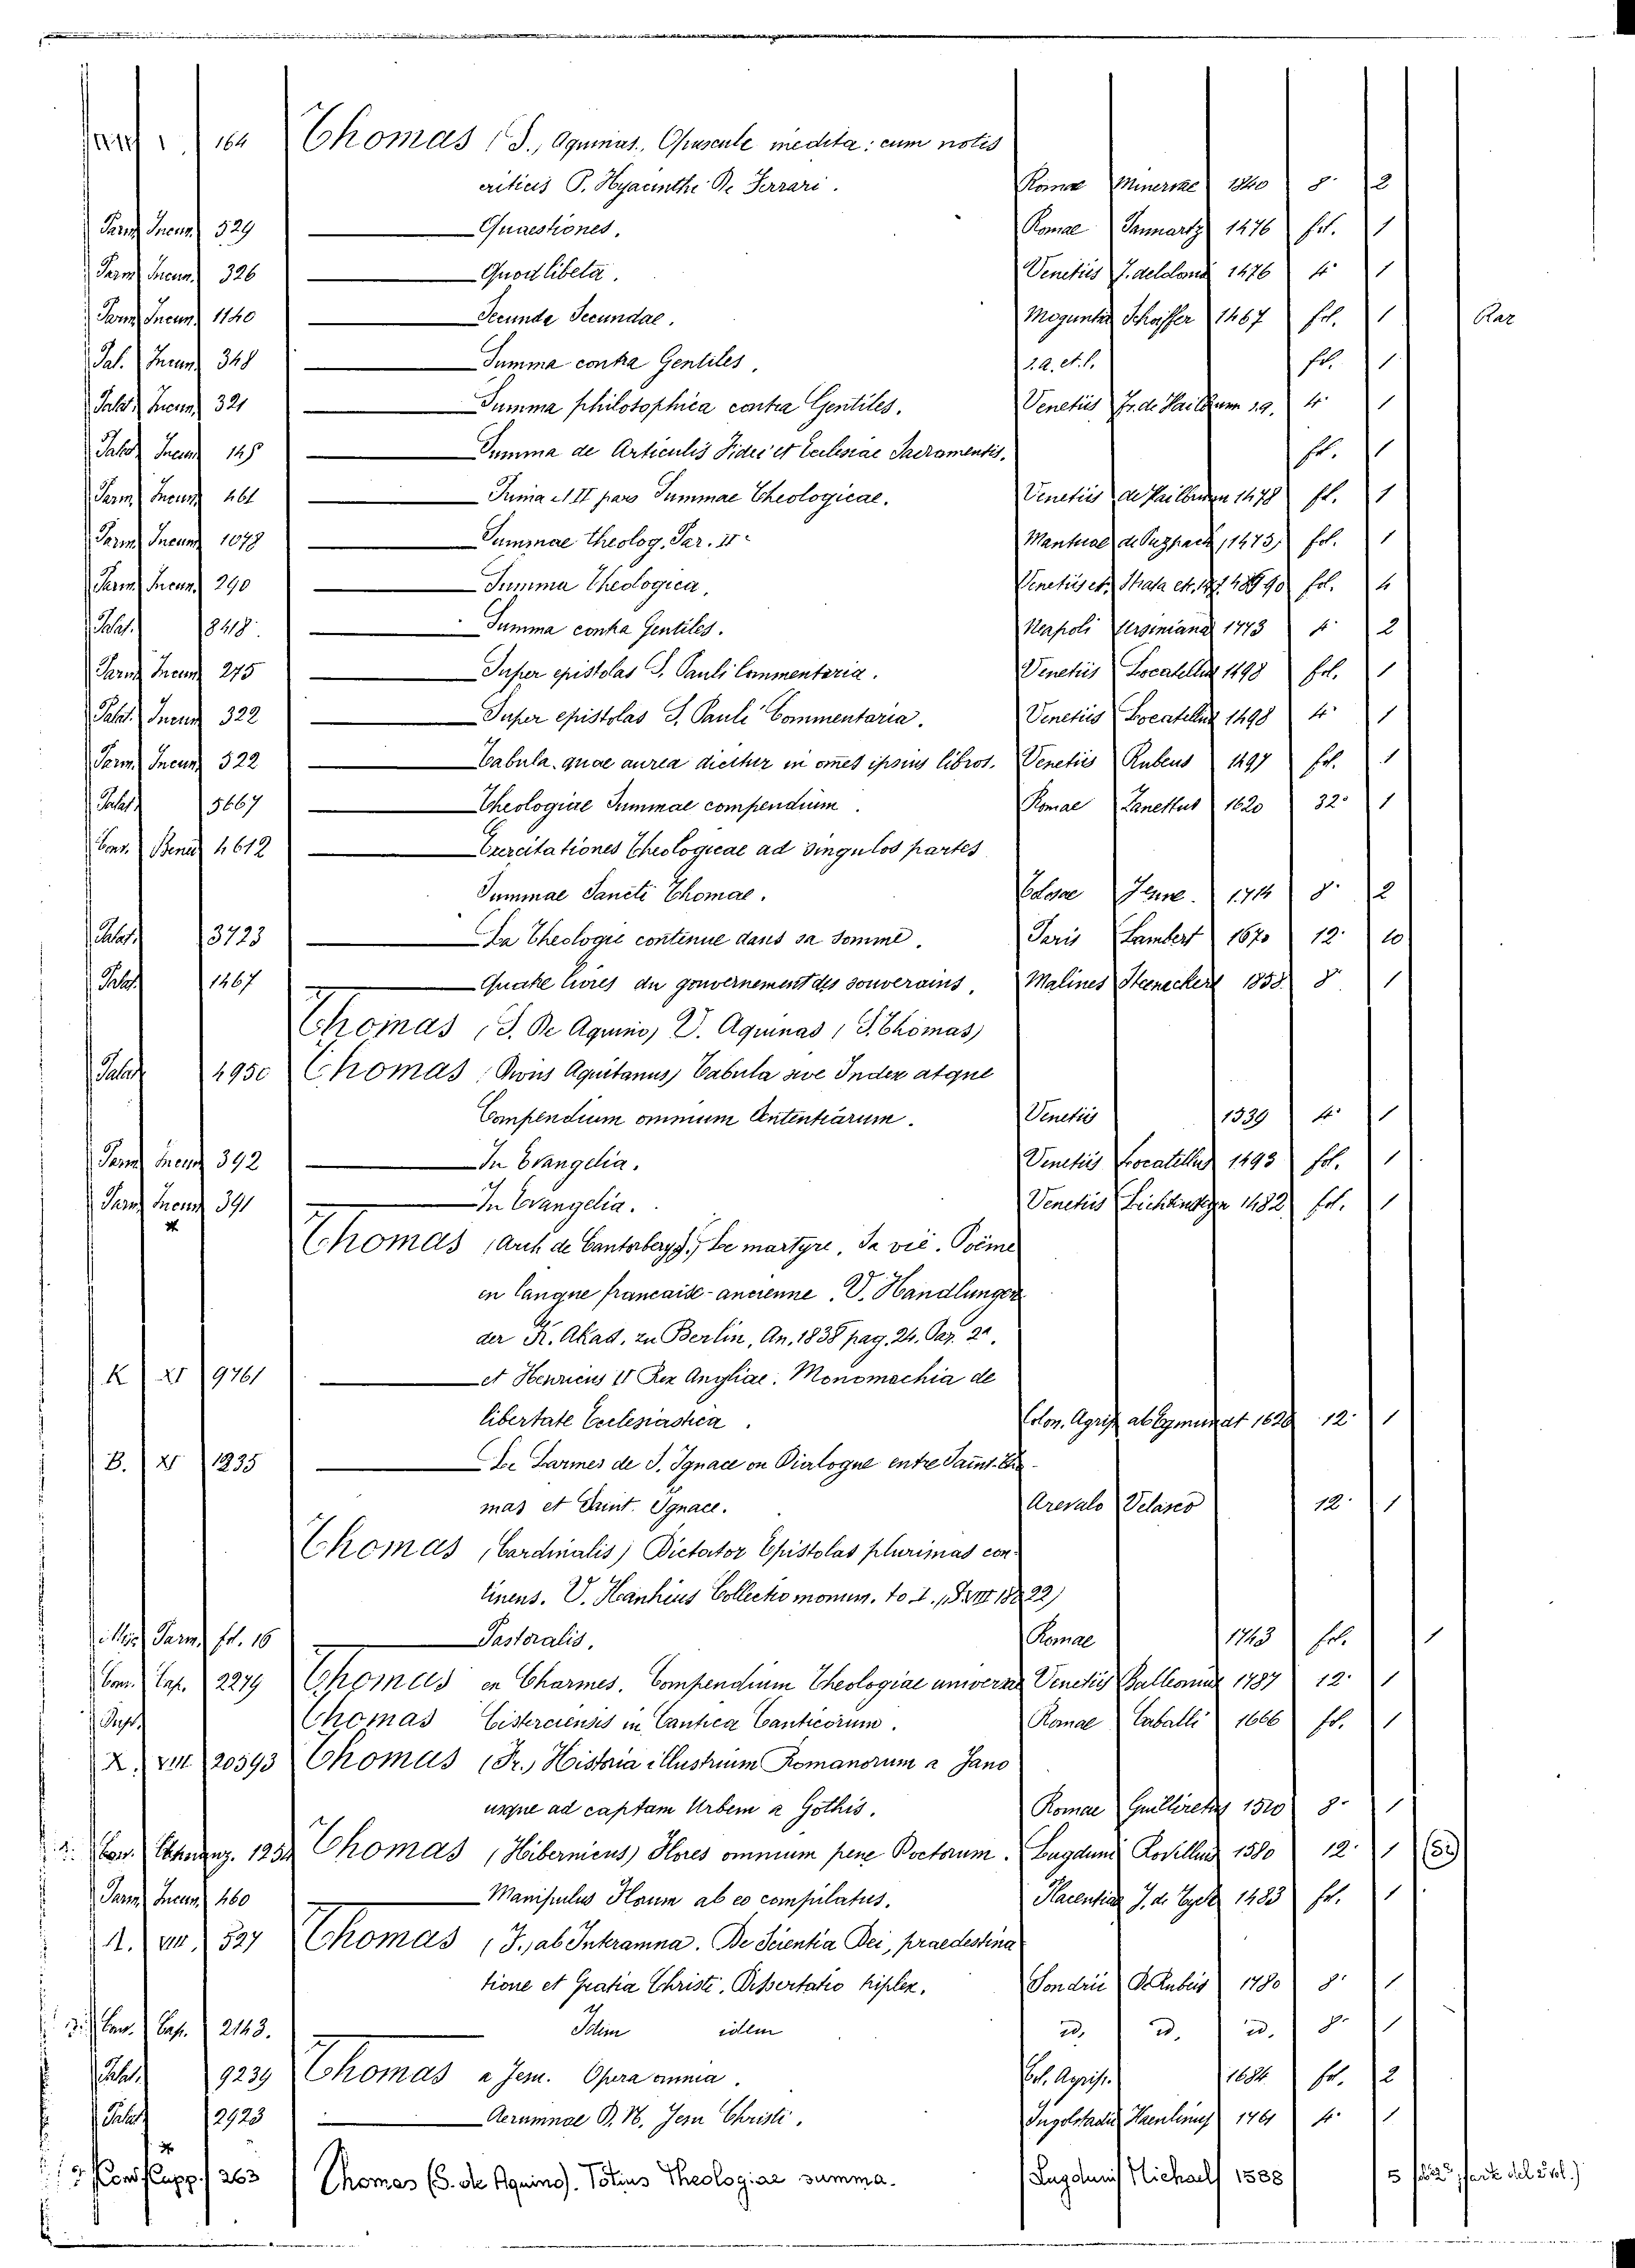 164 Thomas (S., Aquinas, Opuscule inedita: cum notis
criticis P. Hyacinthe De Ferrari. Romae Minervae 1840 8° 2
Parm Incun. 529 Quaestiones. Romae Pannartz 1476 fol. 1
Parm Incun. 326 Quodlibeta. Venetiis 1476 4° 1
Parm Incun. 1140 Secunda Secundae. Moguntiae Schoiffer 1467 fol. 1 Rar
Pal. Incun. 348 Summa contra Gentiles. s. a. et. l. fol. 1
Palat. Incun. 321 Summa philosophica contra Gentiles. Venetiis Fr. de Hailbrum s.a. 4° 1
Palat. Incun. 145 Summa de Articulis Fidei et Ecclesiae Sacramentis. fol. 1
Parm. Incun. 461 Prima et II pars Summae Theologicae. Venetiis de Hailbrunn 1478 fl. 1
Parm. Incun. 1078 Summae Theolog. Par. II Mantuae de Puzpach, 1475, fol. 1
Parm. Incun. 290 Summa Theologica, Venetiis et. Strata etc. fol. 4
Palat. 8418. Summa contra Gentiles. Neapoli Ursiniana 1773 4° 2
Parm. Incun. 275 Super epistolas S. Pauli Commentaria. Venetiis Locatellus 1498 fol. 1
Palat. Incun. 322 Super epistolas S. Pauli Commentaria. Venetiis Locatellus 1498 4° 1
Parm. Incun. 522 Tabula quae aurea dicitur in omēs ipsius libros. Venetiis Rubeus 1497 fol. 1
Palat. 5667 Theologiae Summae compendium. Romae Zanettus 1620 32° 1
Conv. Bened. 4612 Exercitationes Theologicae ad singulos partes
Summae Sancti Thomae. Tolosae 1714 8° 2
Palat. 3723 La Theologie continue dans sa somme. Paris Lambert 1670 12° 10
Palat. 1467 Quatre livres du gouvernement des souverains. Malines Steenackers 1858 8° 1
Thomas (S. De Aquino) V. Aquinas (S. Thomas)
Palat. 4950 Thomas, Divus Aquitanus, Tabula sive Index atque
Compendium omnium Sententiarum. Venetiis 1539 4° 1
Parm. Incun. 392 In Evangelia. Venetiis Locatellus 1493 fol. 1
Parm. Incun. 391 In Evangelia. Venetiis 1482 fol. 1
Thomas (Arch. de Cantorbery), Le martyre, Sa vie. Poème
en langue francaise-ancienne. V. Handlungen
der K. Akad. zu Berlin, An. 1838 pag. 24. Par. 2a.
K XI 9761 et Henricus II Rex Angliae. Monomachia de
libertate Ecclesiastica. Colon. Agrip. ab Egmundt 1626 12° 1
B. XI 1235 Les Larmes de S. Ignace ou Dialogue entre Saint-Tho-
mas et Saint Ignace. Arevalo Velasco 12° 1
Thomas (Cardinalis) Dictator Epistolas plurimas con-
tinens. V. Hanhius Collectio monum. to. I.
Parm. fol. 16 Pastoralis. Romae 1743 fol. 1
Conv. Cap. 2279 Thomas ex Charmes. Compendium Theologiae universae Venetiis Balleonius 1787 12° 1
Thomas Cisterciensis in Cantica Canticorum. Romae Caballi 1666 fol. 1
X. VIII 20593 Thomas (Fr.) Historia illustrium Romanorum a Jano
usque ad captam Urbem a Gothis. Romae Guilliretus 1510 8° 1
Conv. 1254 Thomas (Hibernicus) Flores omnium pene Doctorum. Lugduni Rovillius 1580 12° 1
Parm. Incun. 460 Manipulus Florum ab eo compilatus. Placentiae J. de Tyele 1483 fol. 1
A. VIII. 527 Thomas (J.) ab Interamna. De Scientia Dei, praedestina
tione et Gratia Christi. Dissertatio triplex. Sondrii De Rubeis 1780 8° 1
Conv. Cap. 2143. Idem idem id. id. id. 8° 1
Palat. 9239 Thomas a Jesu. Opera omnia. Col. Agrip. 1684 fol. 2
Palat. 2923 Aerumnae D. N. Jesu Christi. Ingolstadii Haenlinus 1761 4° 1
263 Thomas (S. de Aquino). Totius Theologiae summa. Lugduni Michael 1588 5